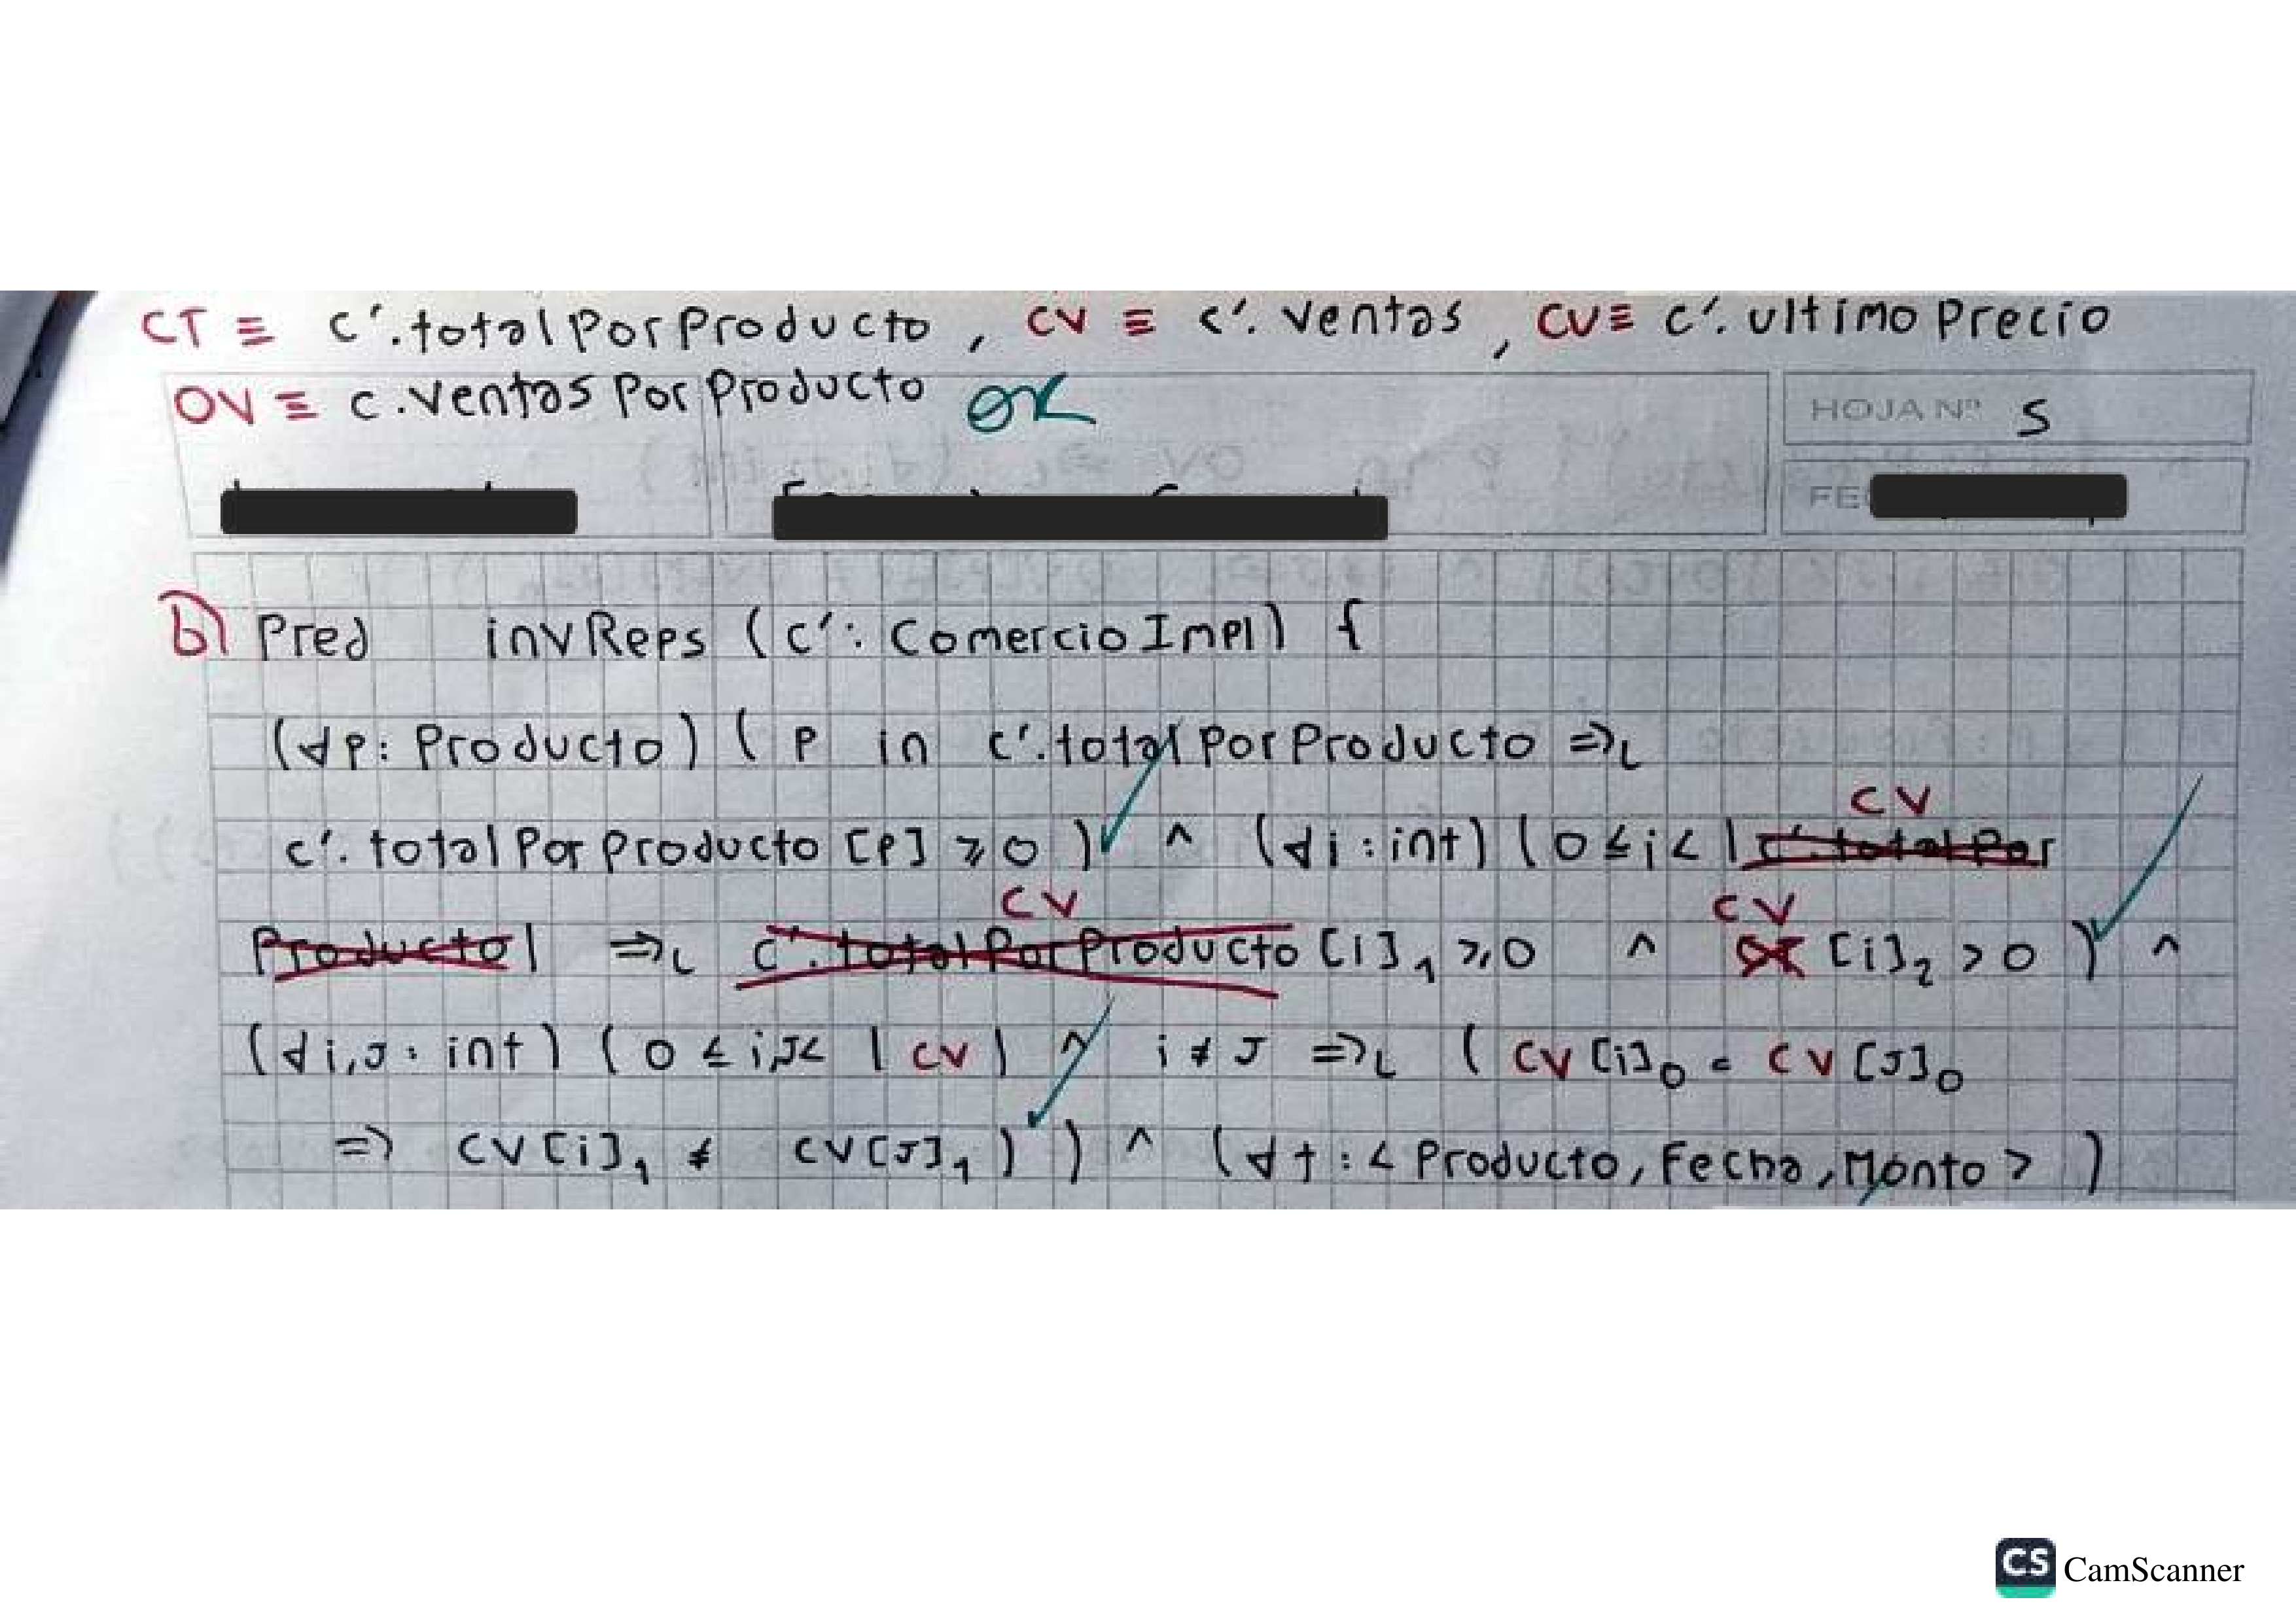 CT ≡ c'.totalPorProducto, CV ≡ c'.ventas, CU ≡ c'.ultimoPrecio
OV ≡ c.ventasPorProducto OK
HOJA Nº 5
FE
b) Pred invReps (c': ComercioImpl) {
(∀p: Producto) ( p in c'.totalPorProducto ⇒L
c'.totalPorProducto [p] ≥ 0 ) ∧ (∀i : int) (0 ≤ i < | CV c'.totalPor
Producto| ⇒L CV c'.totalPorProducto [i]₁ ≥ 0 ∧ CV [i]₂ > 0 ) ∧
(∀i,J: int) ( 0 ≤ i,J < | CV | ∧ i ≠ J ⇒L ( CV [i]₀ = CV [J]₀
⇒ CV[i]₁ ≠ CV[J]₁ ) ) ∧ (∀t : < Producto, Fecha, Monto > )
CS CamScanner